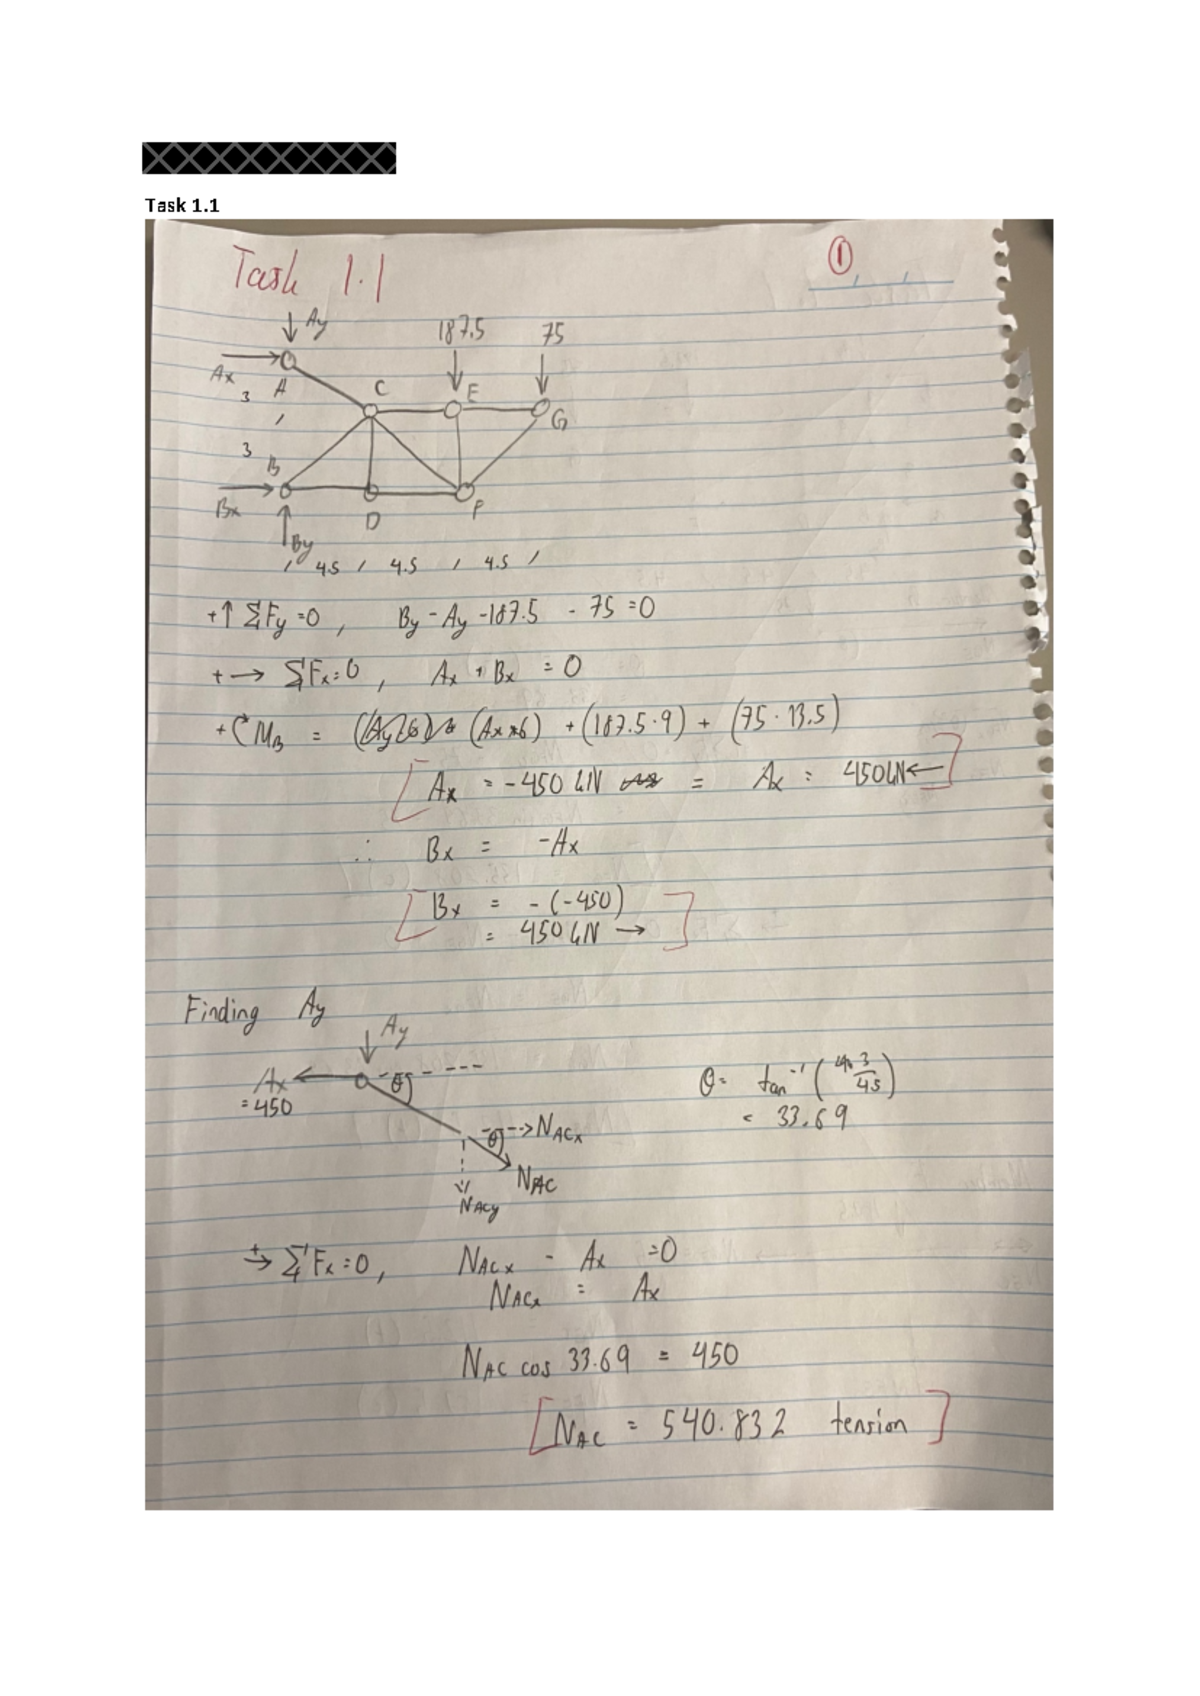 Task 1.1
Task 1.1
①
Ay
187.5
75
Ax
3
A
C
E
G
3
B
Bx
D
F
By
4.5 4.5 4.5
+↑ ΣFy =0, By - Ay -187.5 - 75 =0
+→ ΣFx=0, Ax + Bx = 0
+↻ MB = (Ax*6) + (187.5·9) + (75·13.5)
[Ax = -450 kN = Ax = 450kN←]
∴ Bx = -Ax
[Bx = -(-450)
= 450 kN →]
Finding Ay
Ay
Ax
=450
θ
θ= tan⁻¹ (3/4.5)
= 33.69
θ NACx
NAC
NACy
+→ ΣFx=0, NACx - Ax =0
NACx = Ax
NAC cos 33.69 = 450
[NAC = 540.832 tension]